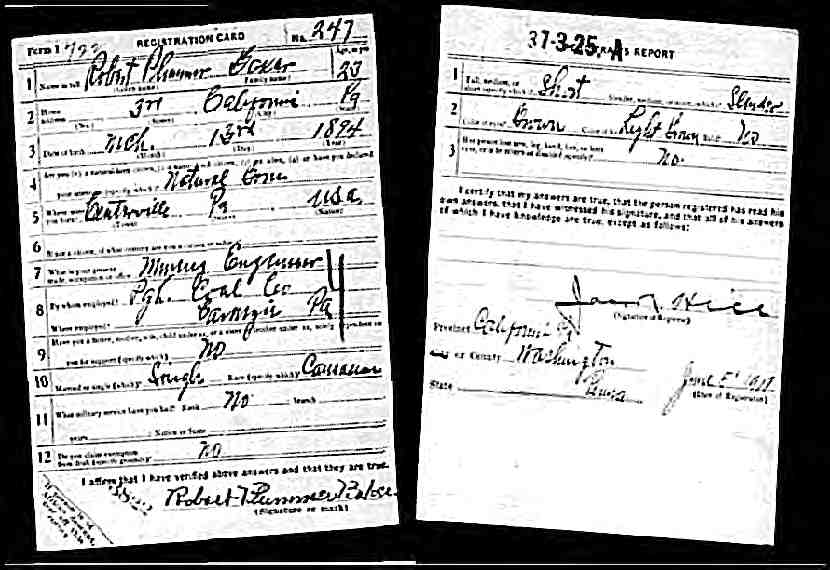 Form 1
REGISTRATION CARD No. 247
1 Name in full Robert Plummer Age, in yrs 23
(Given name) (Family name)
2 Home address 3rd California Pa
(No.) (Street) (City)
3 Date of birth Mch. 13rd 1894
(Month) (Day) (Year)
4 Are you (1) a natural-born citizen, (2) a naturalized citizen, (3) an alien, (4) or have you declared
your intention (specify which)? Natural Born
5 Where were you born? Centerville Pa USA
(Town) (State) (Nation)
6 If not a citizen, of what country are you a citizen or subject?
7 What is your present trade, occupation, or office? Mining Engineer
8 By whom employed? Pgh. Coal Co
Where employed? Pa
9 Have you a father, mother, wife, child under 12, or a sister or brother under 12, solely dependent on
you for support (specify which)? No
10 Married or single (which)? Single Race (specify which)? Caucasian
11 What military service have you had? Rank No ; branch
years ; Nation or State
12 Do you claim exemption from draft (specify grounds)? No
I affirm that I have verified above answers and that they are true.
Robert Plummer
(Signature or mark)
37-3-25. A REGISTRAR'S REPORT
1 Tall, medium, or short (specify which)? Short Slender, medium, or stout (which)? Slender
2 Color of eyes? Brown Color of hair? Light Brown Bald? No
3 Has person lost arm, leg, hand, foot, or both eyes, or is he otherwise disabled (specify)? No.
I certify that my answers are true, that the person registered has read his
own answers, that I have witnessed his signature, and that all of his answers
of which I have knowledge are true, except as follows:
Hill
(Signature of Registrar)
Precinct California Pa
City or County Washington
State Penna June 5" 1917
(Date of Registration)